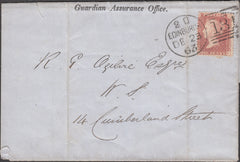 Guardian Assurance Office.
8 D
EDINBURGH
DE 23
63
131
R. E. Ogilvie Esqre
W. S.
14 Cumberland Street